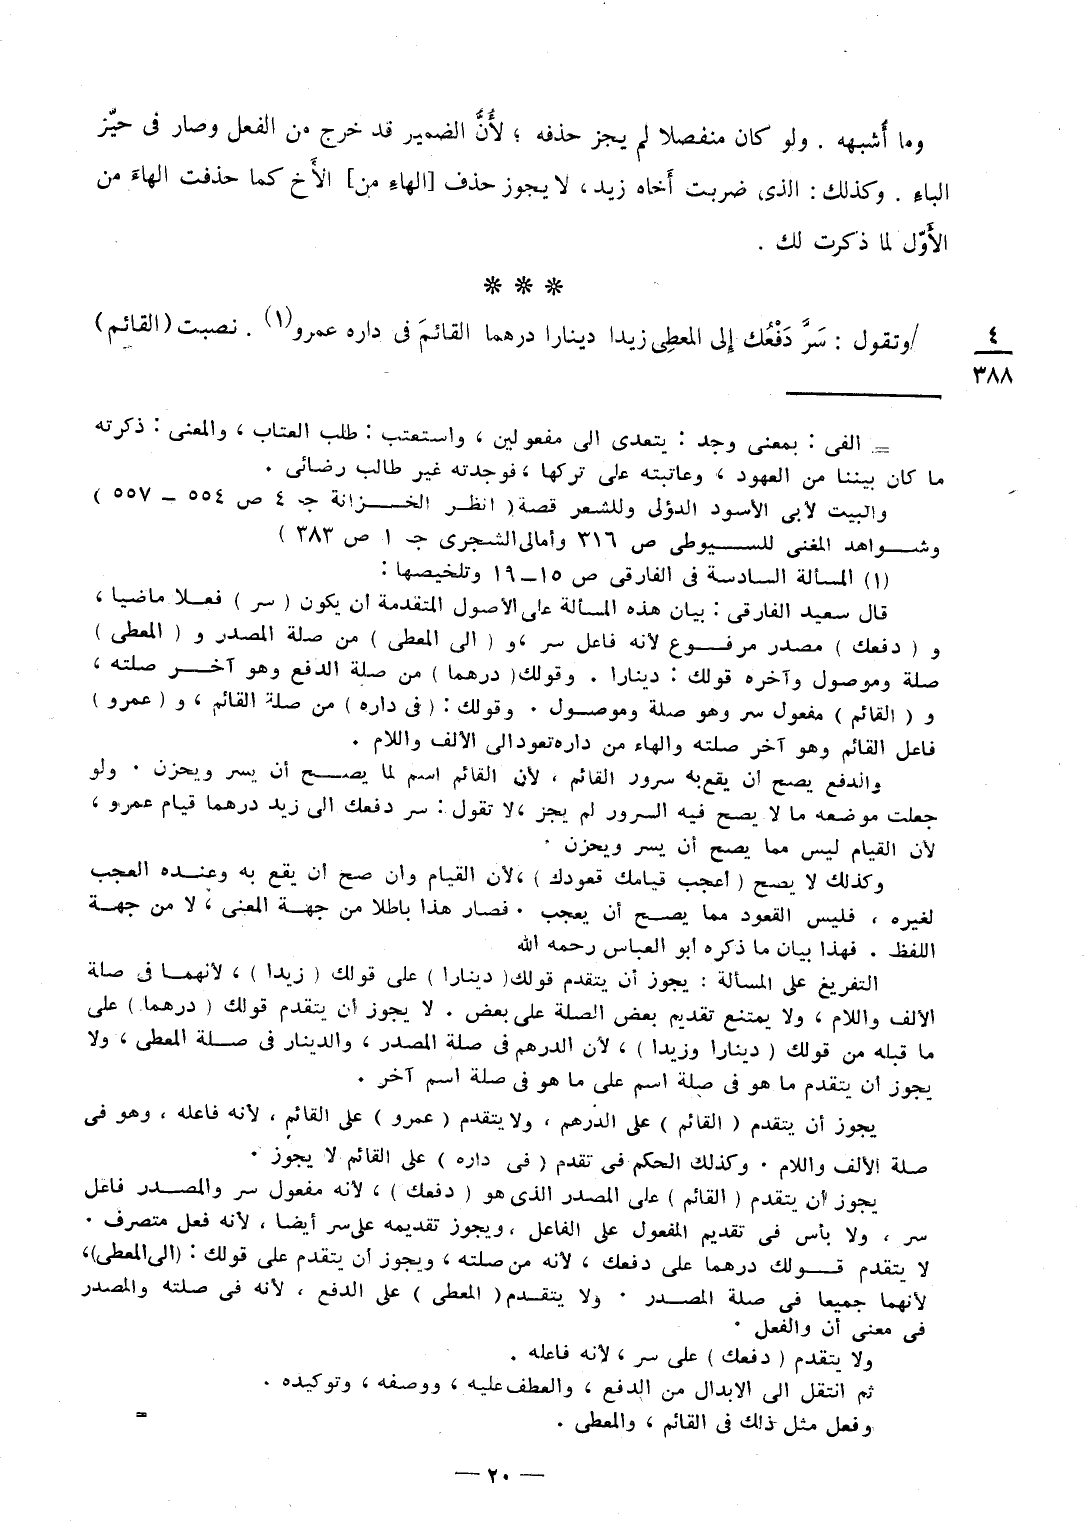 وما أَشبهه . ولو كان منفصلا لم يجز حذفه ؛ لأَنَّ الضمير قد خرج من الفعل وصار فى حيّز
الباء . وكذلك : الذى ضربت أَخاه زيد ، لا يجوز حذف [الهاء من] الأَخ كما حذفت الهاءَ من
الأَوّل لما ذكرت لك .
* * *
/وتقول : سَرَّ دَفْعُك إلى المعطِى زيدا دينارا درهما القائمَ فى داره عمرو(١) . نصبت (القائِم)
٤
٣٨٨
= الفى : بمعنى وجد : يتعدى الى مفعولين ، واستعتب : طلب العتاب ، والمعنى : ذكرته
ما كان بيننا من العهود ، وعاتبته على تركها ، فوجدته غير طالب رضائى .
والبيت لأبى الأسود الدؤلى وللشعر قصة ( انظر الخزانة جـ ٤ ص ٥٥٤ – ٥٥٧ )
وشواهد المغنى للسيوطى ص ٣١٦ وأمالى الشجرى جـ ١ ص ٣٨٣ )
(١) المسألة السادسة فى الفارقى ص ١٥–١٩ وتلخيصها :
قال سعيد الفارقى : بيان هذه المسألة على الأصول المتقدمة أن يكون ( سر ) فعلا ماضيا ،
و ( دفعك ) مصدر مرفوع لأنه فاعل سر ، و ( الى المعطى ) من صلة المصدر و ( المعطى )
صلة وموصول وآخره قولك : دينارا . وقولك ( درهما ) من صلة الدفع وهو آخر صلته ،
و ( القائم ) مفعول سر وهو صلة وموصول . وقولك : ( فى داره ) من صلة القائم ، و ( عمرو )
فاعل القائم وهو آخر صلته والهاء من داره تعود الى الألف واللام .
والدفع يصح أن يقع به سرور القائم ، لأن القائم اسم لما يصح أن يسر ويحزن . ولو
جعلت موضعه ما لا يصح فيه السرور لم يجز ، لا تقول : سر دفعك الى زيد درهما قيام عمرو ،
لأن القيام ليس مما يصح أن يسر ويحزن .
وكذلك لا يصح ( أعجب قيامك قعودك ) ، لأن القيام وان صح أن يقع به وعنده العجب
لغيره ، فليس القعود مما يصح أن يعجب . فصار هذا باطلا من جهة المعنى ، لا من جهة
اللفظ . فهذا بيان ما ذكره أبو العباس رحمه الله
التفريغ على المسألة : يجوز أن يتقدم قولك ( دينارا ) على قولك ( زيدا ) ، لأنهما فى صلة
الألف واللام ، ولا يمتنع تقديم بعض الصلة على بعض . لا يجوز أن يتقدم قولك ( درهما ) على
ما قبله من قولك ( دينارا وزيدا ) ، لأن الدرهم فى صلة المصدر ، والدينار فى صلة المعطى ، ولا
يجوز أن يتقدم ما هو فى صلة اسم على ما هو فى صلة اسم آخر .
يجوز أن يتقدم ( القائم ) على الدرهم ، ولا يتقدم ( عمرو ) على القائم ، لأنه فاعله ، وهو فى
صلة الألف واللام . وكذلك الحكم فى تقدم ( فى داره ) على القائم لا يجوز .
يجوز أن يتقدم ( القائم ) على المصدر الذى هو ( دفعك ) ، لأنه مفعول سر والمصدر فاعل
سر ، ولا بأس فى تقديم المفعول على الفاعل ، ويجوز تقديمه على سر أيضا ، لأنه فعل متصرف .
لا يتقدم قولك درهما على دفعك ، لأنه من صلته ، ويجوز أن يتقدم على قولك : (الى المعطى) ،
لأنهما جميعا فى صلة المصدر . ولا يتقدم ( المعطى ) على الدفع ، لأنه فى صلته والمصدر
فى معنى أن والفعل .
ولا يتقدم ( دفعك ) على سر ، لأنه فاعله .
ثم انتقل الى الابدال من الدفع ، والعطف عليه ، ووصفه ، وتوكيده .
وفعل مثل ذلك فى القائم ، والمعطى .
=
— ٢٠ —